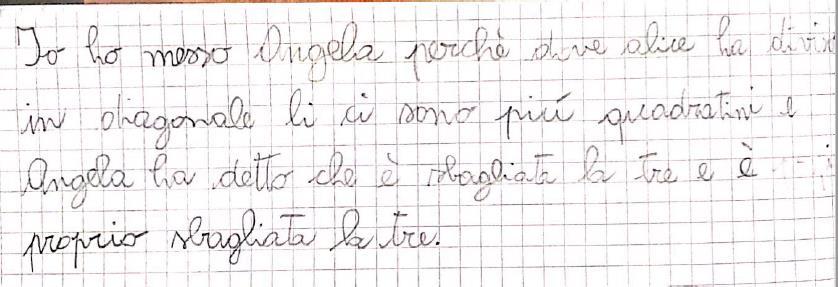 Io ho messo Angela perchè dove alice ha divis
in diagonale li ci sono piú quadratini e
Angela ha detto che è sbagliata la tre e è
proprio sbagliata la tre.